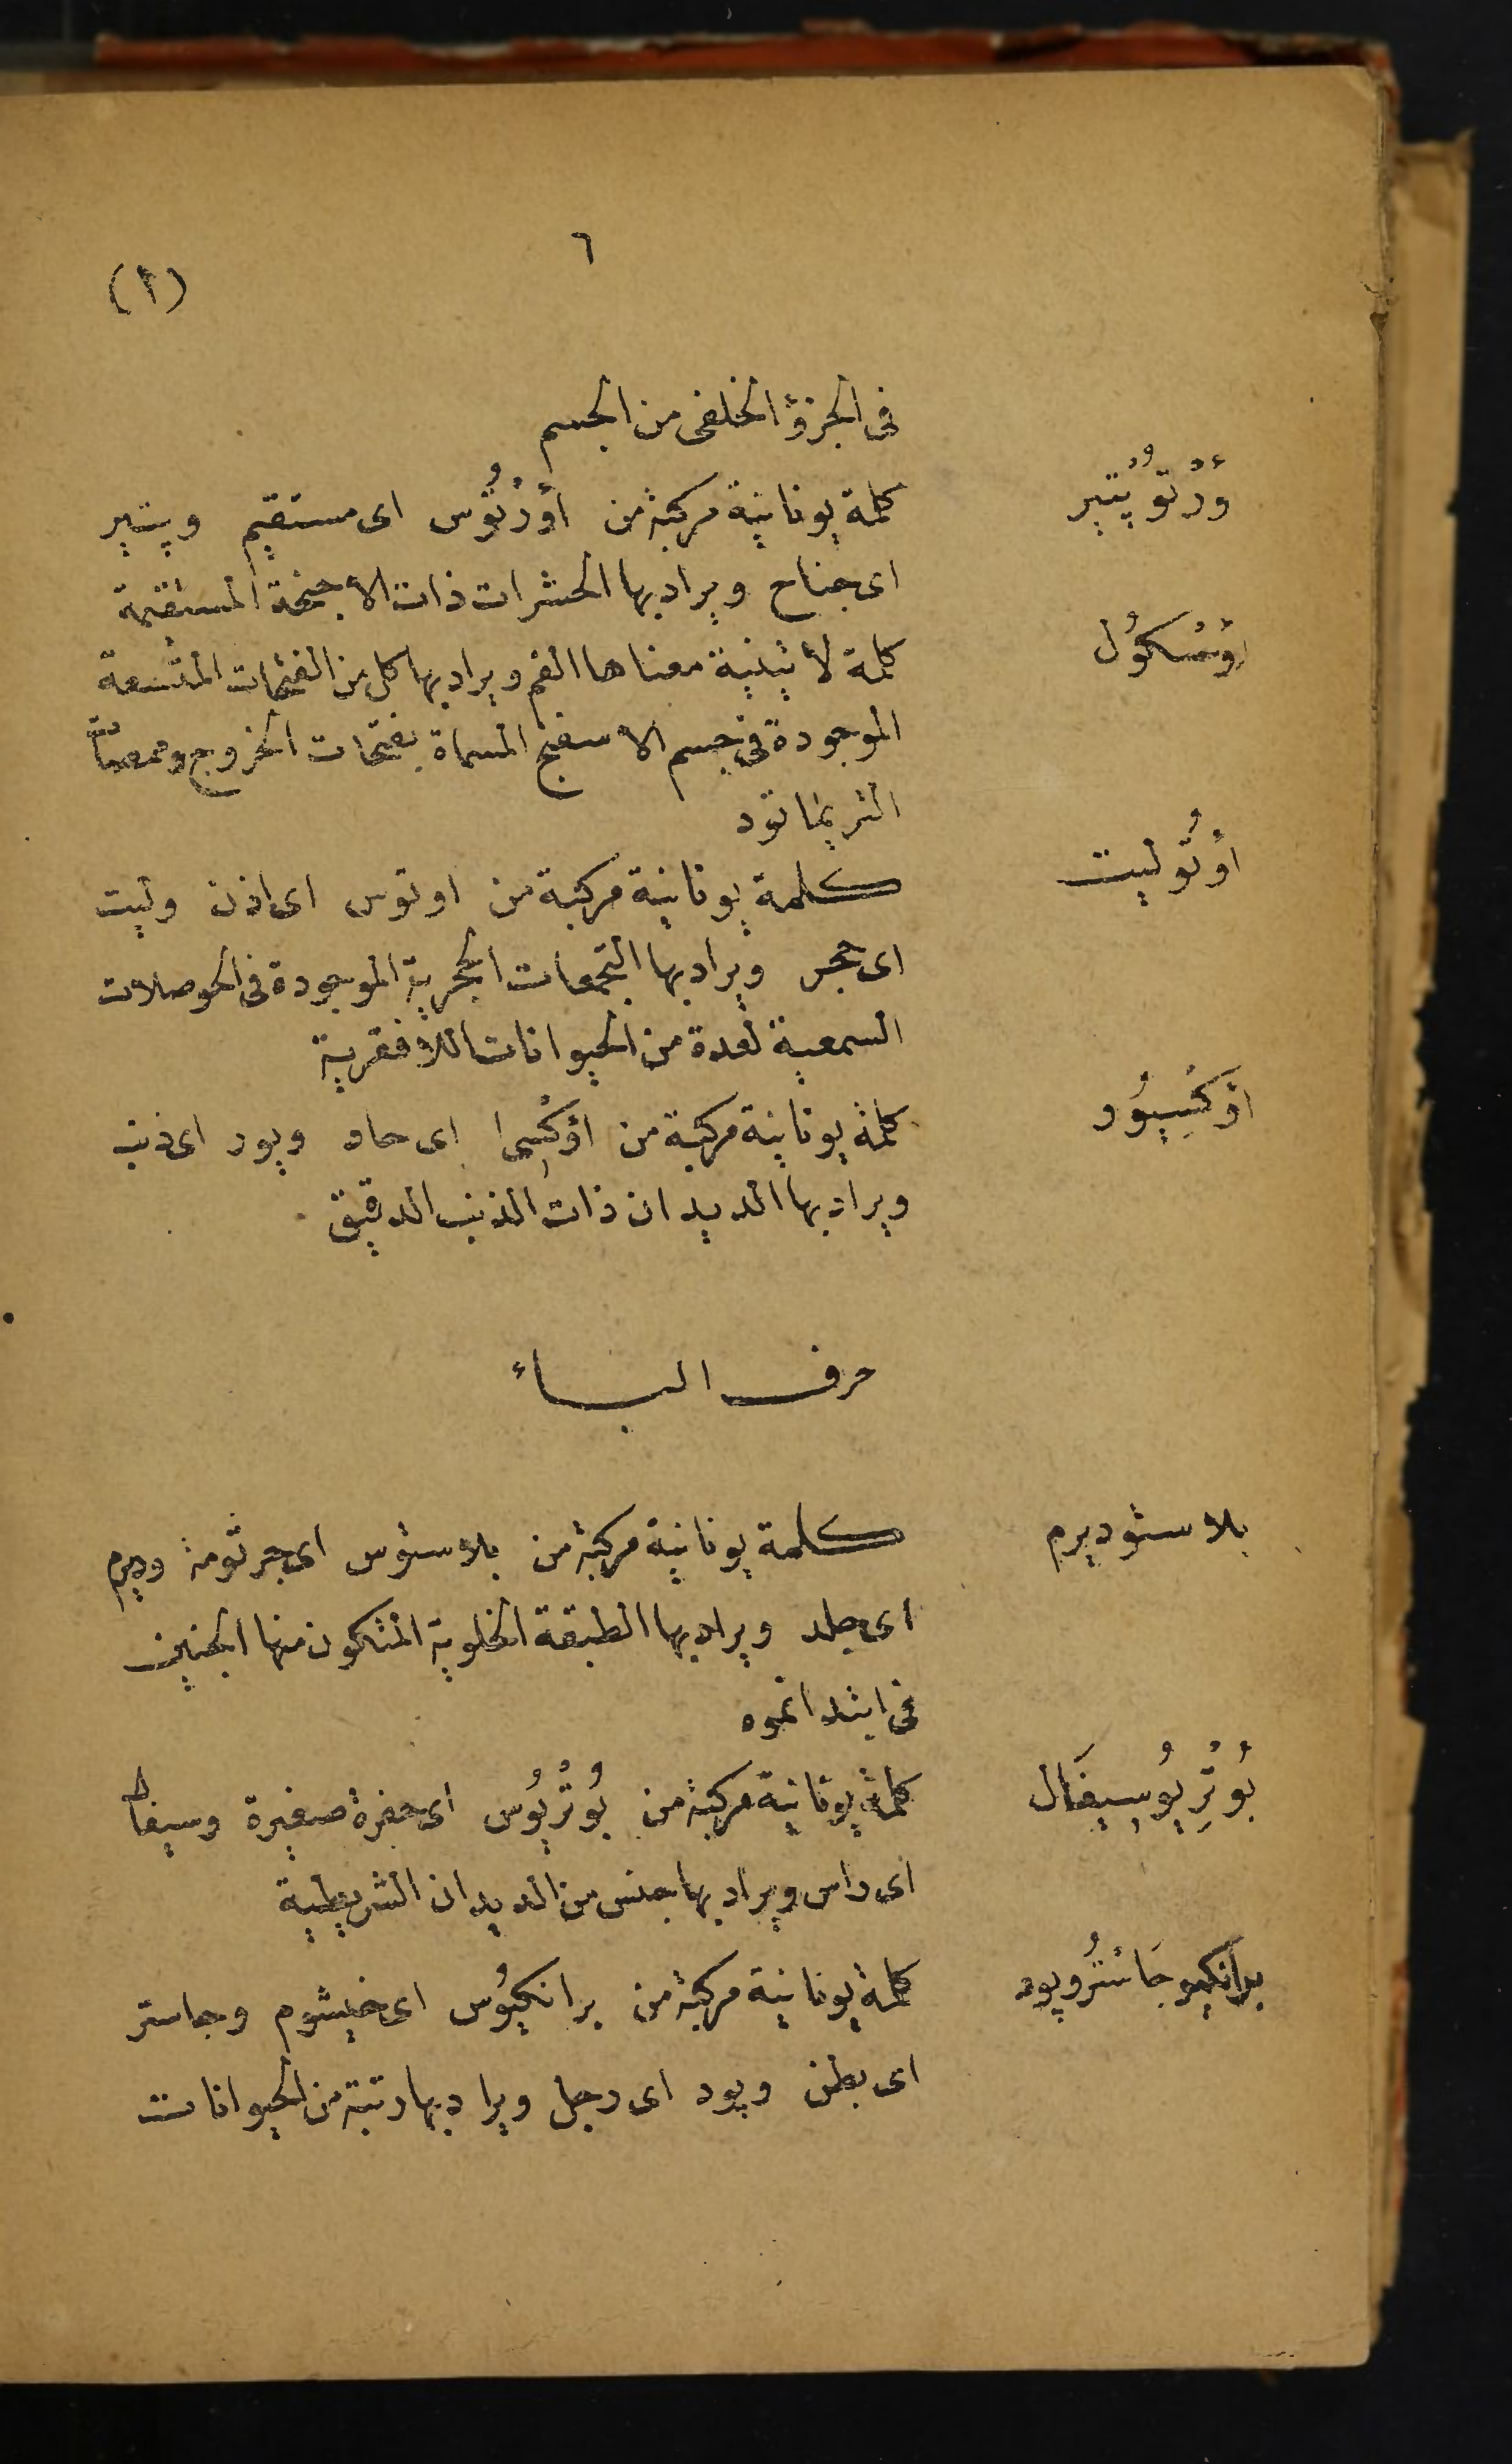 ٦
(١)
فى الجزؤ الخلفى من الجسم
وُرْتوُپْتير كلمة يونانية مركبة من أوُرْتُوس اى مستقيم وپتير
اى جناح ويراد بها الحشرات ذات الاجنحة المستقيمة
اوُسْكوُل كلمة لاتينية معناها الفم ويراد بها كل من الفتحات المتسعة
الموجودة فى جسم الاسفنج المسماة بفتحات الخروج وممصات
التريماتود
اوُتُوليت كلمة يونانية مركبة من اوتوس اى اذن وليت
اى حجر ويراد بها التجمعات الحجرية الموجودة فى الحوصلات
السمعية لعدة من الحيوانات اللافقرية
أوكْسِيوُر كلمة يونانية مركبة من أوكْسِى اى حاد ويور اى ذنب
ويراد بها الديدان ذات الذنب الدقيق
حرف الباء
بلاستوديرم كلمة يونانية مركبة من بلاستوس اى جرثومة وديرم
اى جلد ويراد بها الطبقة الخلوية المتكون منها الجنين
فى ابتدا نموه
بُوتْرِيوُسيفَال كلمة يونانية مركبة من بُوتْرِيوُس اى حفرة صغيرة وسيفال
اى راس ويراد بها جنس من الديدان الشريطية
برانكيو جَاسْتُروپود كلمة يونانية مركبة من برانكيوُس اى خيشوم وجاستر
اى بطن وپود اى رجل ويراد بها رتبة من الحيوانات